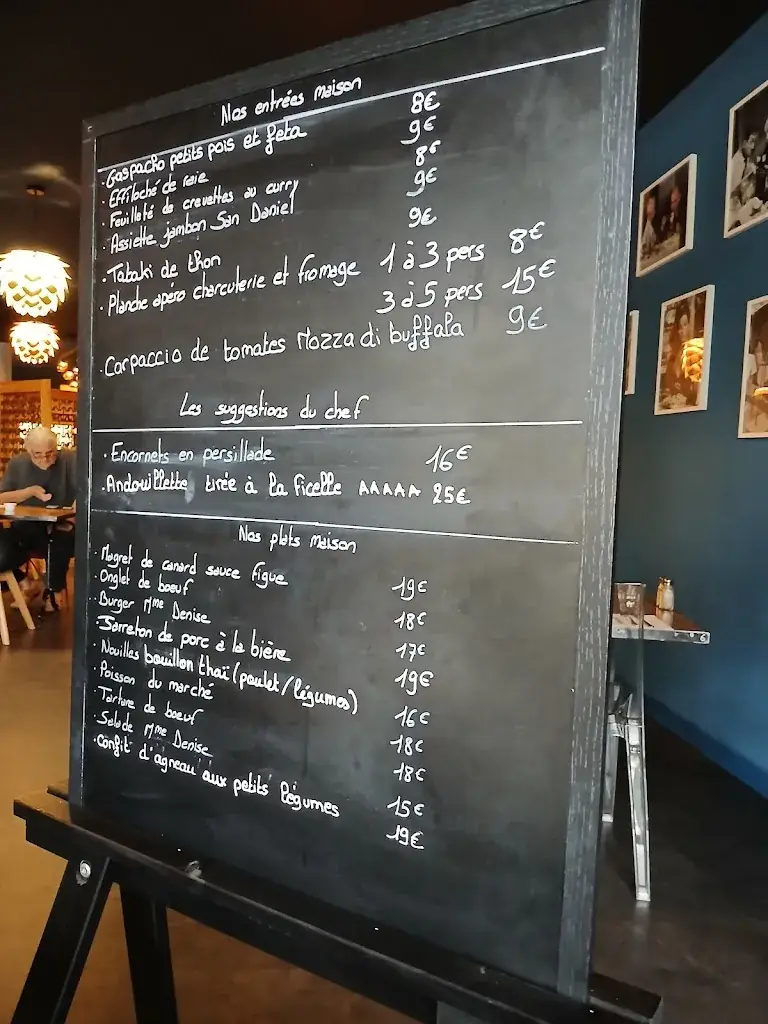 Nos entrées maison
. Gaspacho petits pois et feta 8€
. Effiloché de raie 9€
. Feuilleté de crevettes au curry 8€
. Assiette jambon San Daniel 9€
. Tataki de thon 9€
. Planche apéro charcuterie et fromage 1 à 3 pers 8€
3 à 5 pers 15€
. Carpaccio de tomates Mozza di buffala 9€
Les suggestions du chef
. Encornets en persillade 16€
. Andouillette tirée à la ficelle AAAAA 25€
Nos plats maison
. Magret de canard sauce figue 19€
. Onglet de boeuf 18€
. Burger Mme Denise 17€
. Jarreton de porc à la bière 19€
. Nouilles bouillon thaï (poulet/légumes) 16€
. Poisson du marché 18€
. Tartare de boeuf 18€
. Salade Mme Denise 15€
. Confit d'agneau aux petits légumes 19€